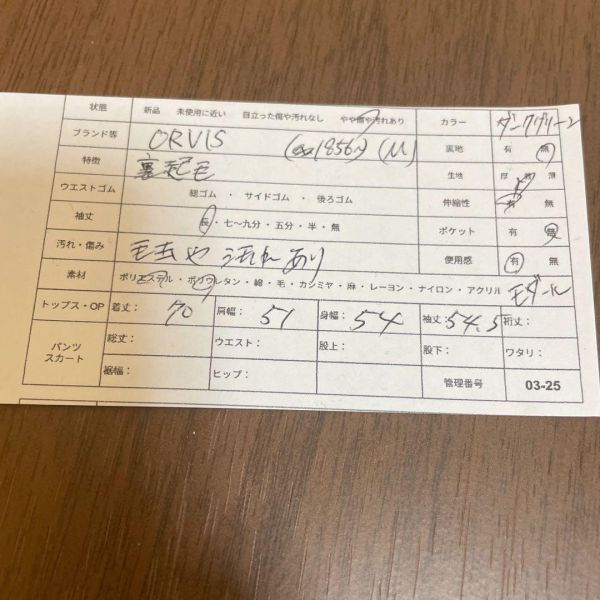 状態 新品 未使用に近い 目立った傷や汚れなし やや傷や汚れあり カラー ダークグリーン
ブランド等 ORVIS (1856) (M) 裏地 有 無
特徴 裏起毛 生地 厚 普 薄
ウエストゴム 総ゴム ・ サイドゴム ・ 後ろゴム 伸縮性 有 無
袖丈 長・七〜九分・五分・半・無 ポケット 有 無
汚れ・傷み 毛玉や汚れあり 使用感 有 無
素材 ポリエステル・ポリウレタン・綿・毛・カシミヤ・麻・レーヨン・ナイロン・アクリル モダール
トップス・OP 着丈: 70 肩幅: 51 身幅: 54 袖丈: 54.5 裄丈:
パンツ スカート 総丈: ウエスト: 股上: 股下: ワタリ:
裾幅: ヒップ: 管理番号 03-25